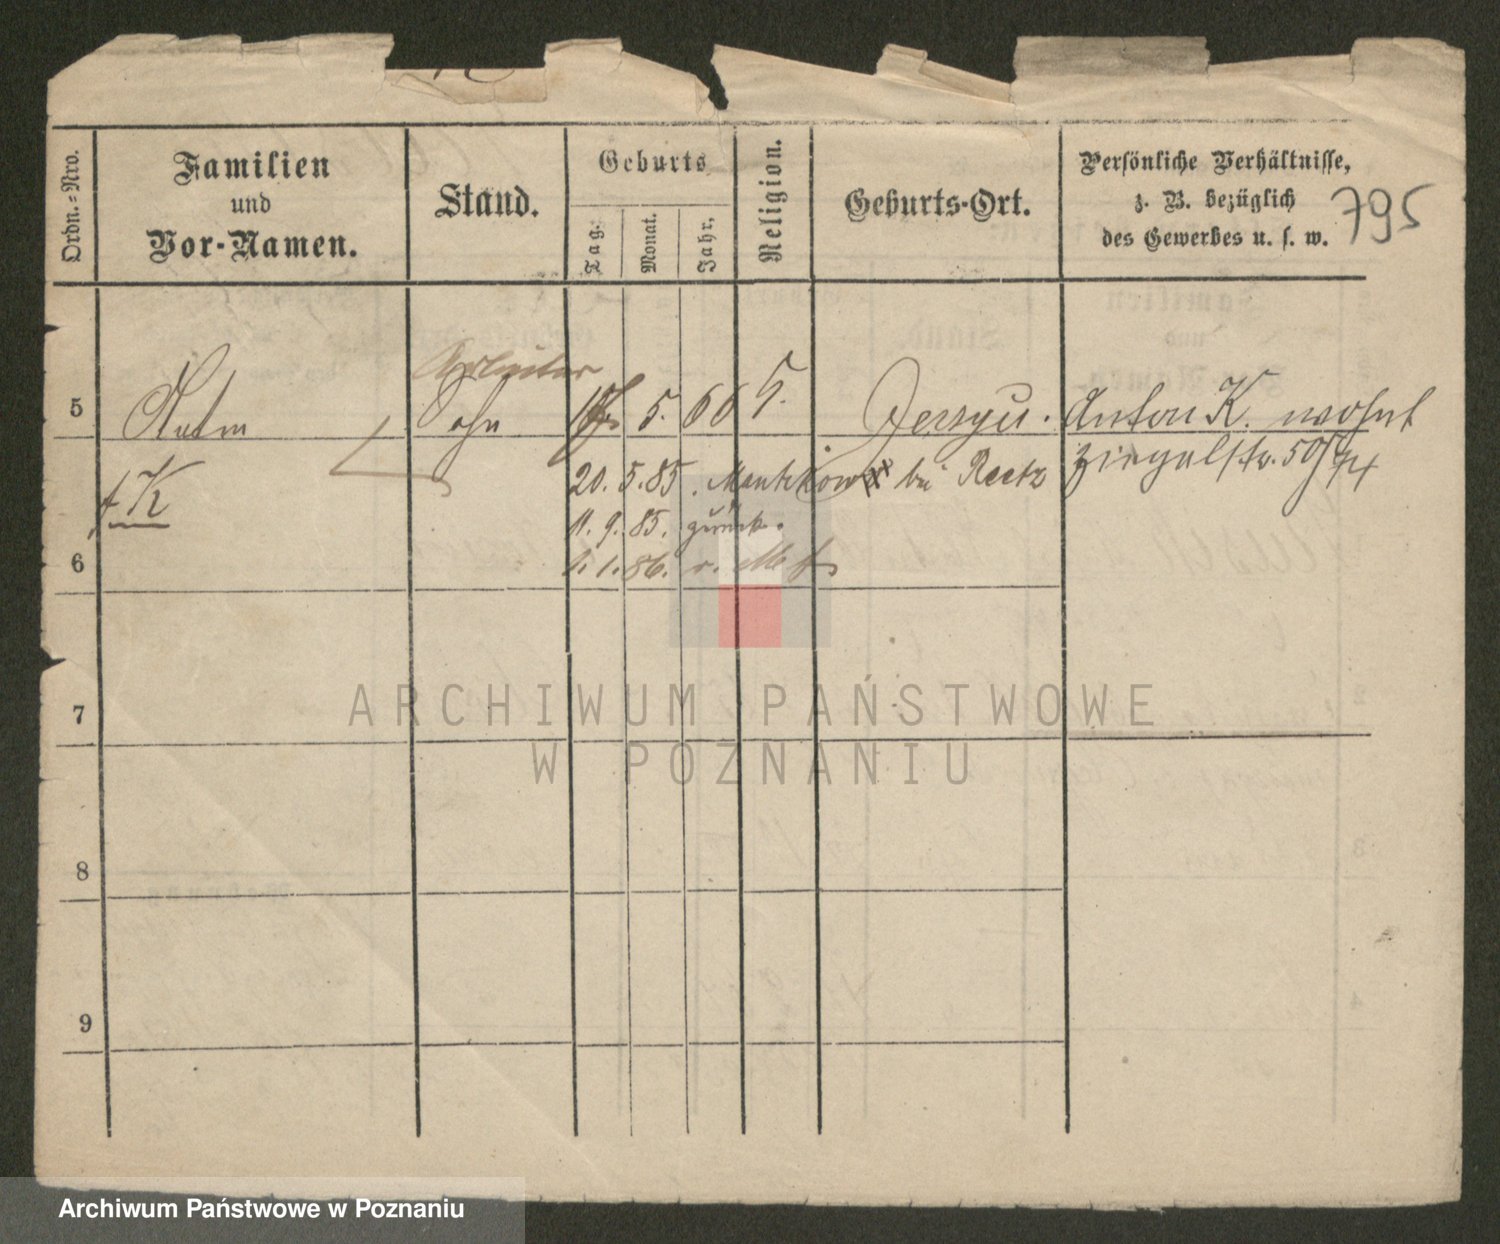 795
Ordn.-Nro.
Familien
und
Vor-Namen.
Stand.
Geburts
Tag.
Monat.
Jahr.
Religion.
Geburts-Ort.
Persönliche Verhältnisse,
z. B. bezüglich
des Gewerbes u. s. w.
Arbeiter
5
Sohn
5. 66
Jerzyce. Anton K. wohnt
20. 5. 85. bei Reetz
K
11. 9. 85. zurück.
6
1. 1. 86.
7
8
9
ARCHIWUM PAŃSTWOWE
W POZNANIU
Archiwum Państwowe w Poznaniu